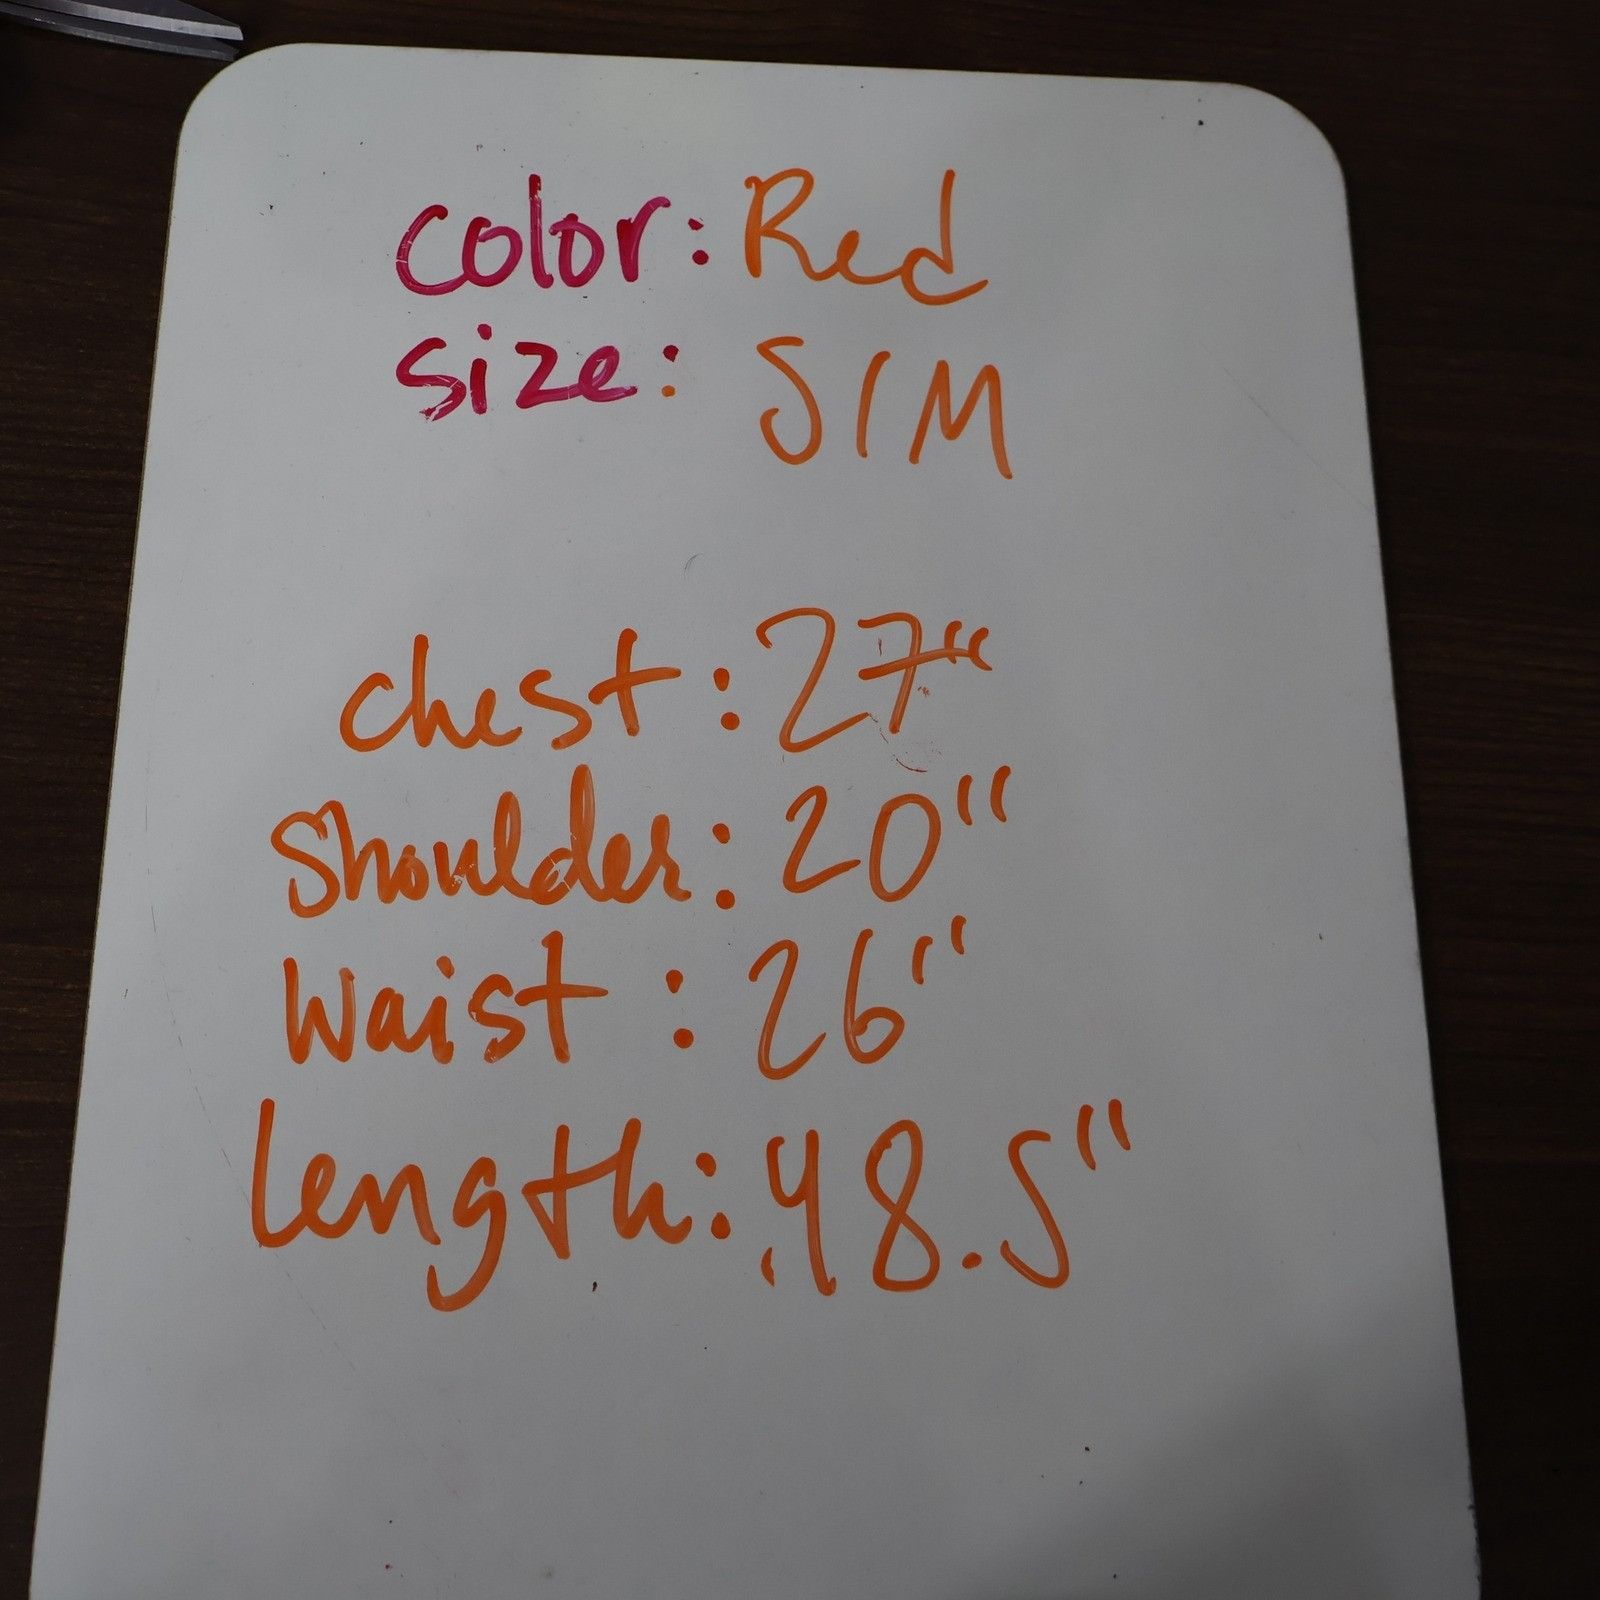 color: Red
size: S/M
chest: 27"
Shoulder: 20"
Waist: 26"
length: 48.5"